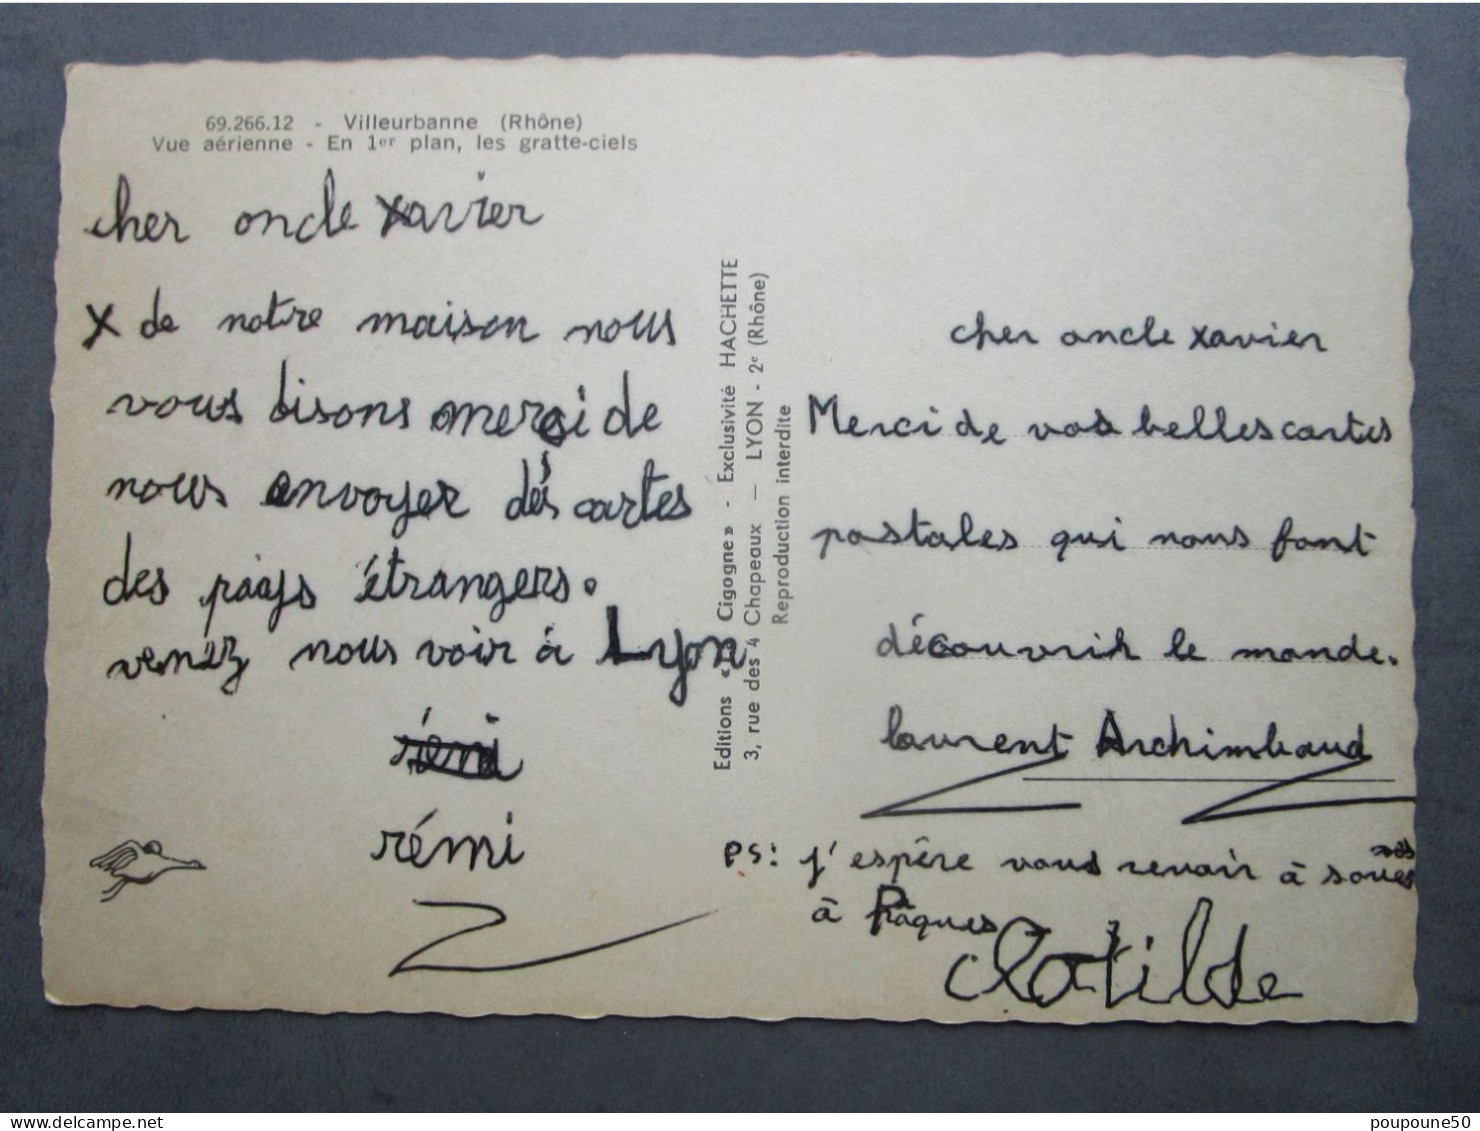 69.266.12 - Villeurbanne (Rhône)
Vue aérienne - En 1er plan, les gratte-ciels
cher oncle xavier
X de notre maison nous
vous bisons merci de
nous envoyer dés cartes
des pays étrangers.
venez nous voir à Lyon
rémi
rémi
Editions « Cigogne » - Exclusivité HACHETTE
3, rue des 4 Chapeaux — LYON - 2e (Rhône)
Reproduction interdite
cher oncle xavier
Merci de vos belles cartes
postales qui nous font
découvrir le monde.
laurent Archimbaud
PS: j'espère vous revoir à
à Pâques
Clotilde
delcampe.net
poupoune50